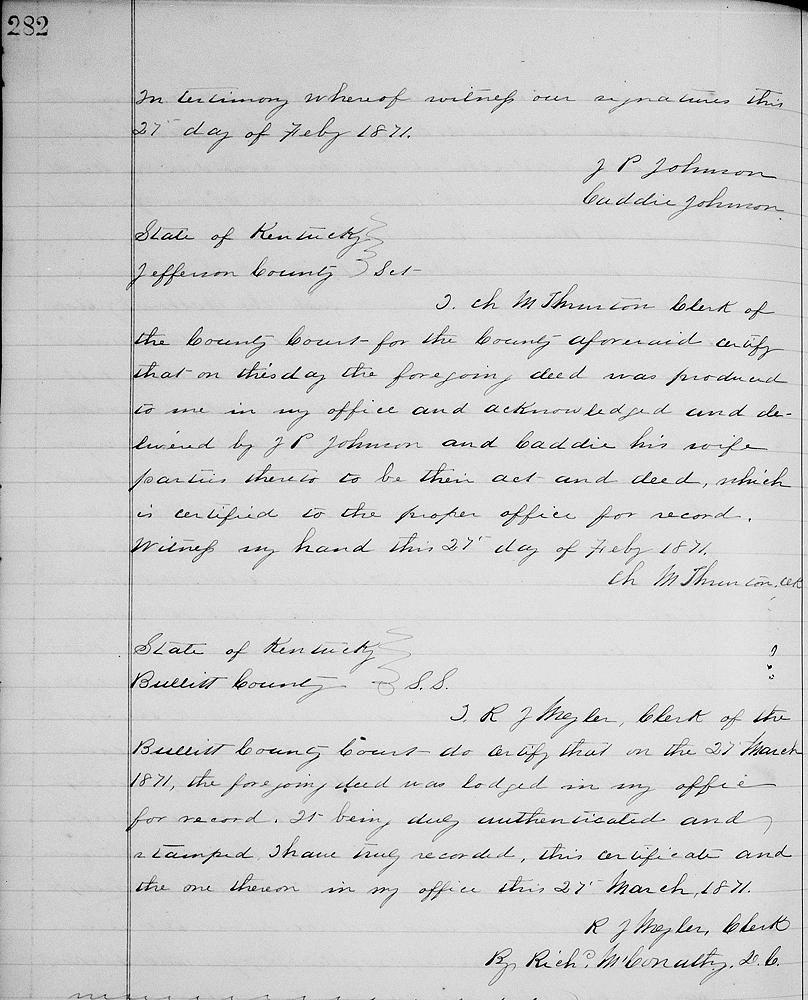 282
In testimony whereof witness our signatures this
27 day of Feby 1871.
J P Johnson
Caddie Johnson
State of Kentucky
Jefferson County Sct
I. Ch M Thruston Clerk of
the County Court for the County aforesaid certify
that on this day the foregoing deed was produced
to me in my office and acknowledged and de-
livered by J P Johnson and Caddie his wife
parties thereto to be their act and deed, which
is certified to the proper office for record.
Witness my hand this 27 day of Feby 1871.
Ch M Thruston, Clk
State of Kentucky
Bullitt County S.S.
I. R J Meyler, Clerk of the
Bullitt County Court do certify that on the 27 March
1871, the foregoing deed was lodged in my office
for record. It being duly authenticated and
stamped I have truly recorded, this certificate and
the one thereon in my office this 27 March, 1871.
R J Meyler, Clerk
By Richd. McConathy, D.C.